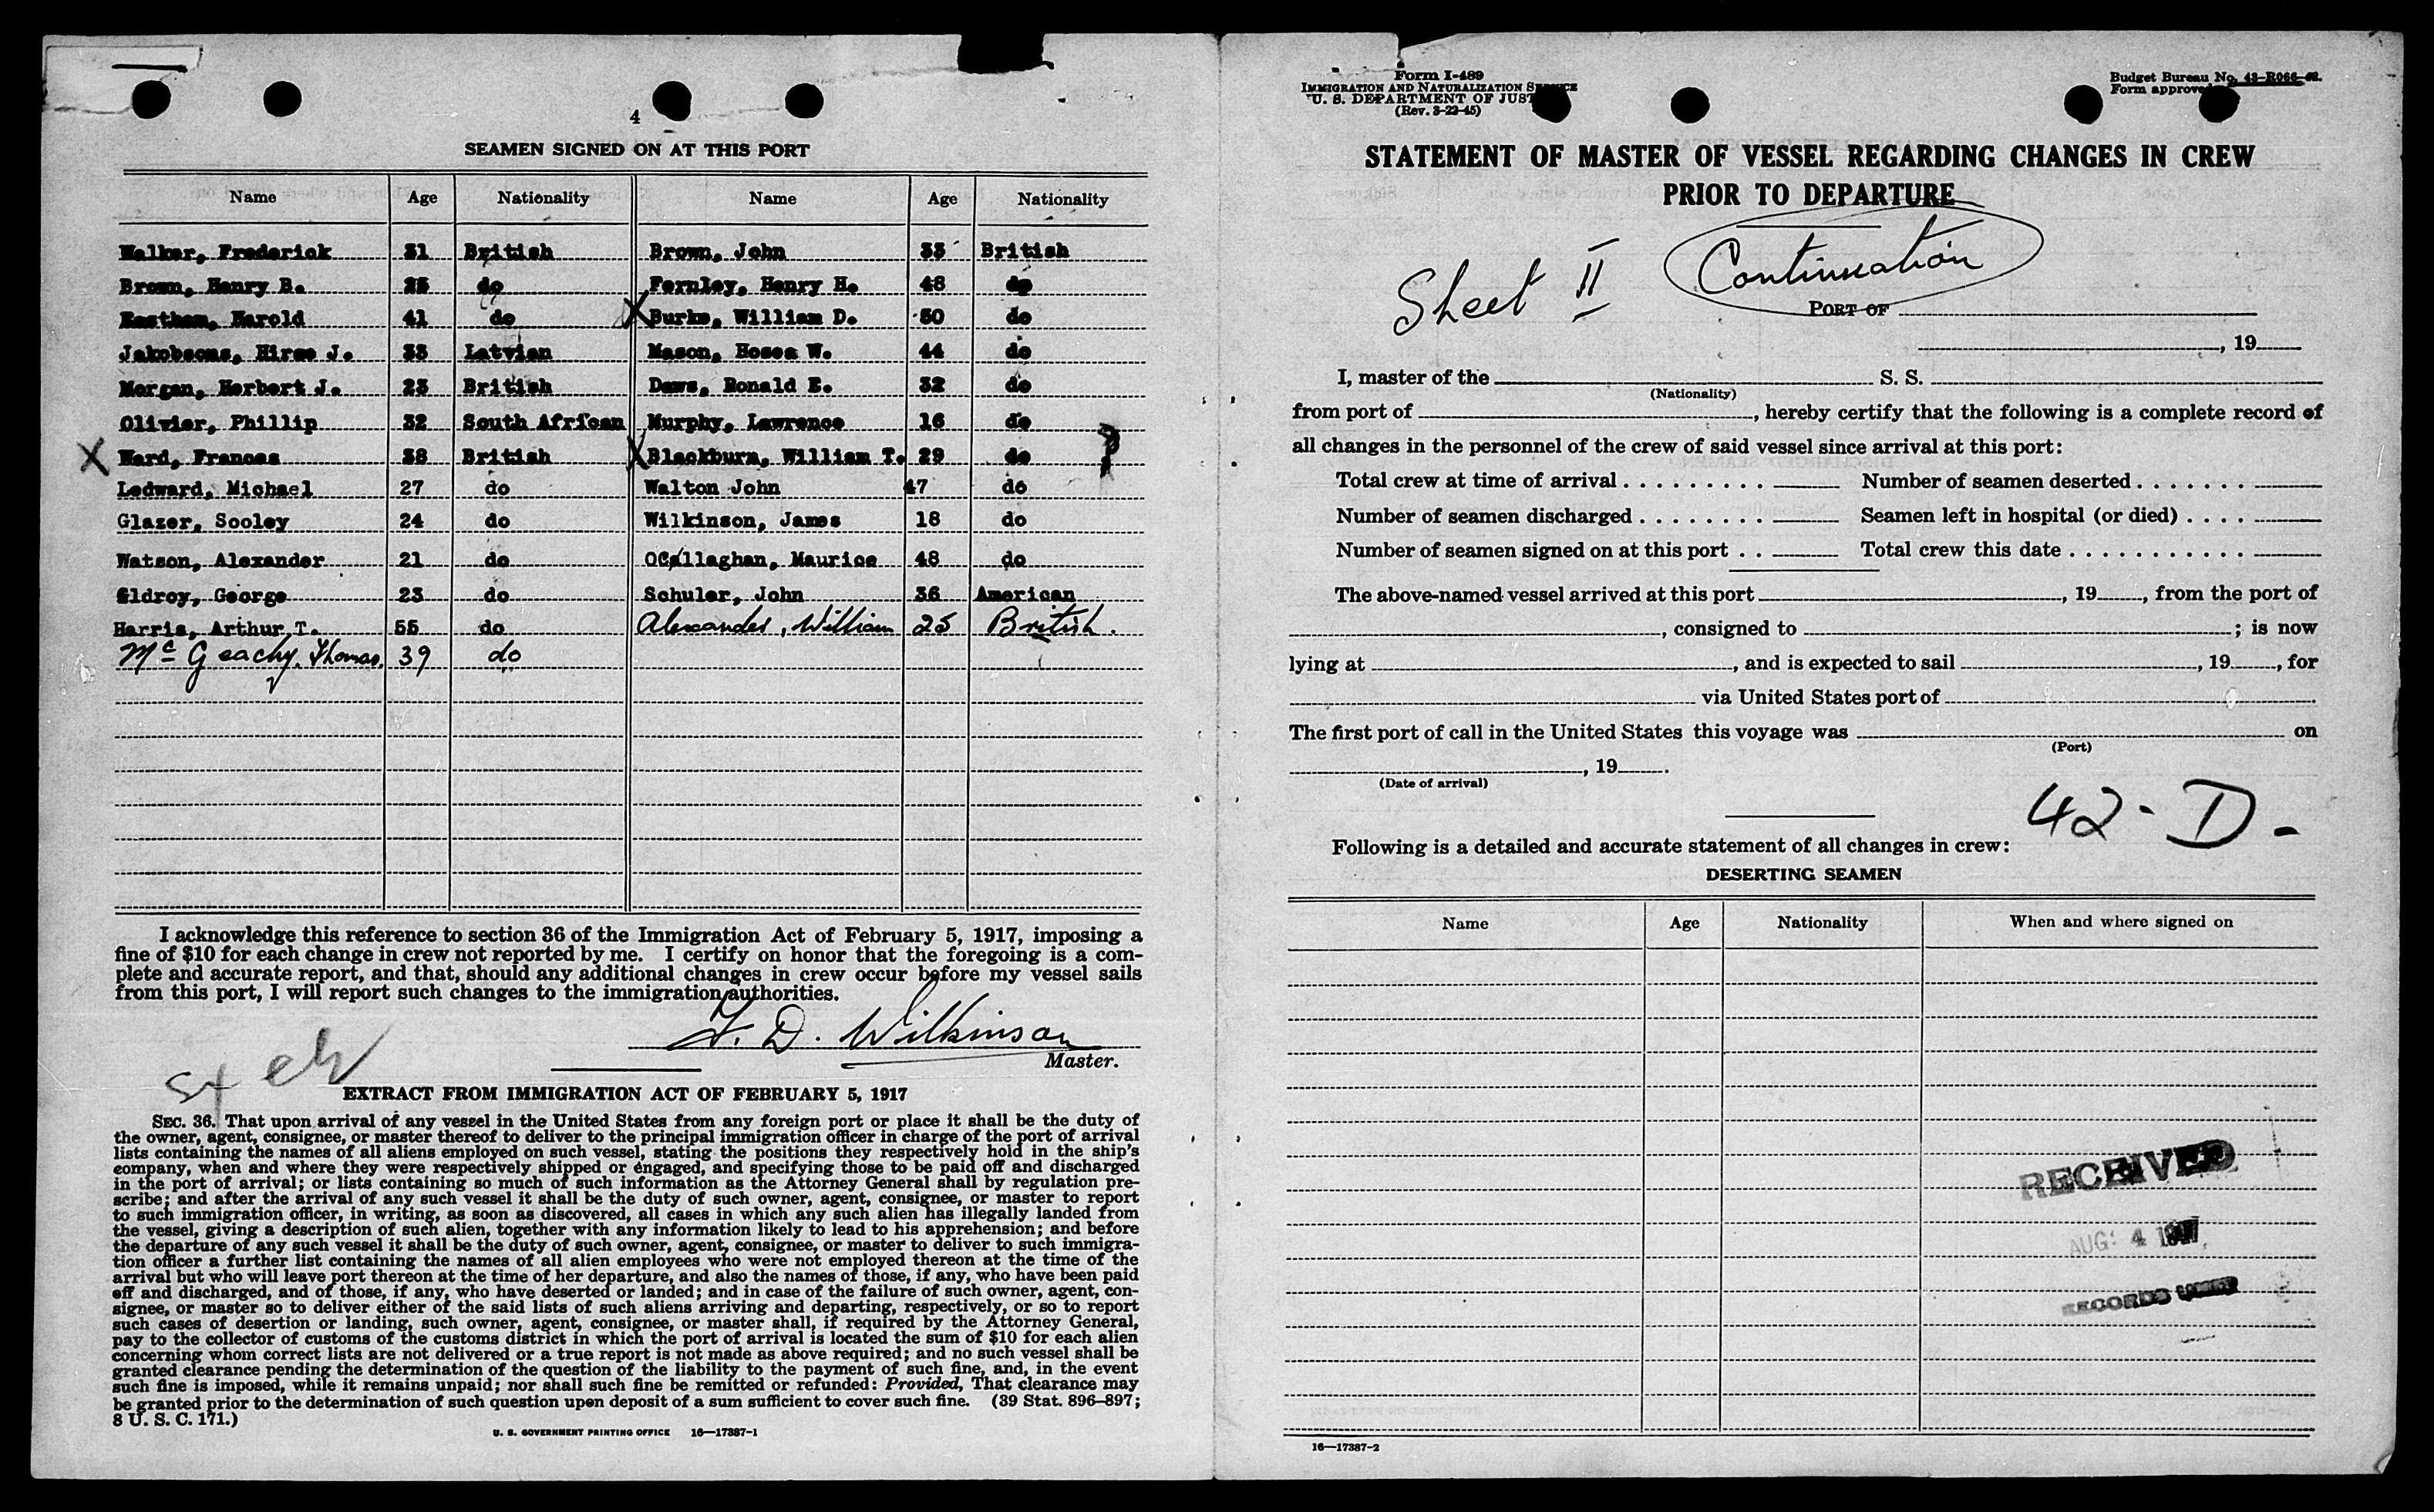 4
SEAMEN SIGNED ON AT THIS PORT
Name Age Nationality Name Age Nationality
Walker, Frederick 31 British Brown, John 33 British
Brown, Henry B. 25 do Fernley, Henry H. 48 do
Eastham, Harold 41 do X Burke, William D. 50 do
Jakobsons, Hirse J. 33 Latvian Mason, Hosea W. 44 do
Morgan, Herbert J. 23 British Daws, Ronald E. 32 do
Olivier, Phillip 32 South African Murphy, Lawrence 16 do
X Ward, Frances 38 British X Blackburn, William T. 29 do
Ledward, Michael 27 do Walton John 47 do
Glazer, Sooley 24 do Wilkinson, James 18 do
Watson, Alexander 21 do OCallaghan, Maurice 48 do
Gldroy, George 23 do Schuler, John 36 American
Harris, Arthur T. 55 do Alexander, William 25 British.
Mc Geachy, Thomas. 39 do
I acknowledge this reference to section 36 of the Immigration Act of February 5, 1917, imposing a
fine of $10 for each change in crew not reported by me. I certify on honor that the foregoing is a com-
plete and accurate report, and that, should any additional changes in crew occur before my vessel sails
from this port, I will report such changes to the immigration authorities.
F. D. Wilkinson
Master.
EXTRACT FROM IMMIGRATION ACT OF FEBRUARY 5, 1917
SEC. 36. That upon arrival of any vessel in the United States from any foreign port or place it shall be the duty of
the owner, agent, consignee, or master thereof to deliver to the principal immigration officer in charge of the port of arrival
lists containing the names of all aliens employed on such vessel, stating the positions they respectively hold in the ship's
company, when and where they were respectively shipped or engaged, and specifying those to be paid off and discharged
in the port of arrival; or lists containing so much of such information as the Attorney General shall by regulation pre-
scribe; and after the arrival of any such vessel it shall be the duty of such owner, agent, consignee, or master to report
to such immigration officer, in writing, as soon as discovered, all cases in which any such alien has illegally landed from
the vessel, giving a description of such alien, together with any information likely to lead to his apprehension; and before
the departure of any such vessel it shall be the duty of such owner, agent, consignee, or master to deliver to such immigra-
tion officer a further list containing the names of all alien employees who were not employed thereon at the time of the
arrival but who will leave port thereon at the time of her departure, and also the names of those, if any, who have been paid
off and discharged, and of those, if any, who have deserted or landed; and in case of the failure of such owner, agent, con-
signee, or master so to deliver either of the said lists of such aliens arriving and departing, respectively, or so to report
such cases of desertion or landing, such owner, agent, consignee, or master shall, if required by the Attorney General,
pay to the collector of customs of the customs district in which the port of arrival is located the sum of $10 for each alien
concerning whom correct lists are not delivered or a true report is not made as above required; and no such vessel shall be
granted clearance pending the determination of the question of the liability to the payment of such fine, and, in the event
such fine is imposed, while it remains unpaid; nor shall such fine be remitted or refunded: Provided, That clearance may
be granted prior to the determination of such question upon deposit of a sum sufficient to cover such fine. (39 Stat. 896–897;
8 U. S. C. 171.)
U. S. GOVERNMENT PRINTING OFFICE 16—17387-1
Form I-489
IMMIGRATION AND NATURALIZATION
U. S. DEPARTMENT OF
(Rev. 3-22-45)
Budget Bureau No. 43-R066-42.
Form approved
STATEMENT OF MASTER OF VESSEL REGARDING CHANGES IN CREW
PRIOR TO DEPARTURE
Sheet II Continuation
PORT OF
, 19
I, master of the S. S.
(Nationality)
from port of , hereby certify that the following is a complete record of
all changes in the personnel of the crew of said vessel since arrival at this port:
Total crew at time of arrival . . . . . . . . . . Number of seamen deserted . . . . . . .
Number of seamen discharged . . . . . . . . Seamen left in hospital (or died) . . . .
Number of seamen signed on at this port . . Total crew this date . . . . . . . . . . . .
The above-named vessel arrived at this port , 19 , from the port of
, consigned to ; is now
lying at , and is expected to sail , 19 , for
via United States port of .
The first port of call in the United States this voyage was on
(Port)
, 19 .
(Date of arrival)
42 - D -
Following is a detailed and accurate statement of all changes in crew:
DESERTING SEAMEN
Name Age Nationality When and where signed on
RECEIVED
AUG 4 1947
RECORDS
16—17387-2